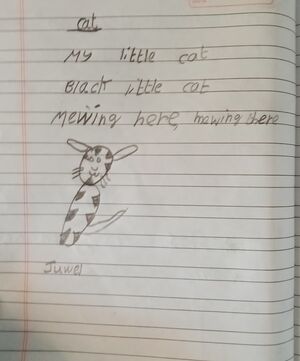 cat
My little cat
Black little cat
Mewing here, mewing there
Juwel